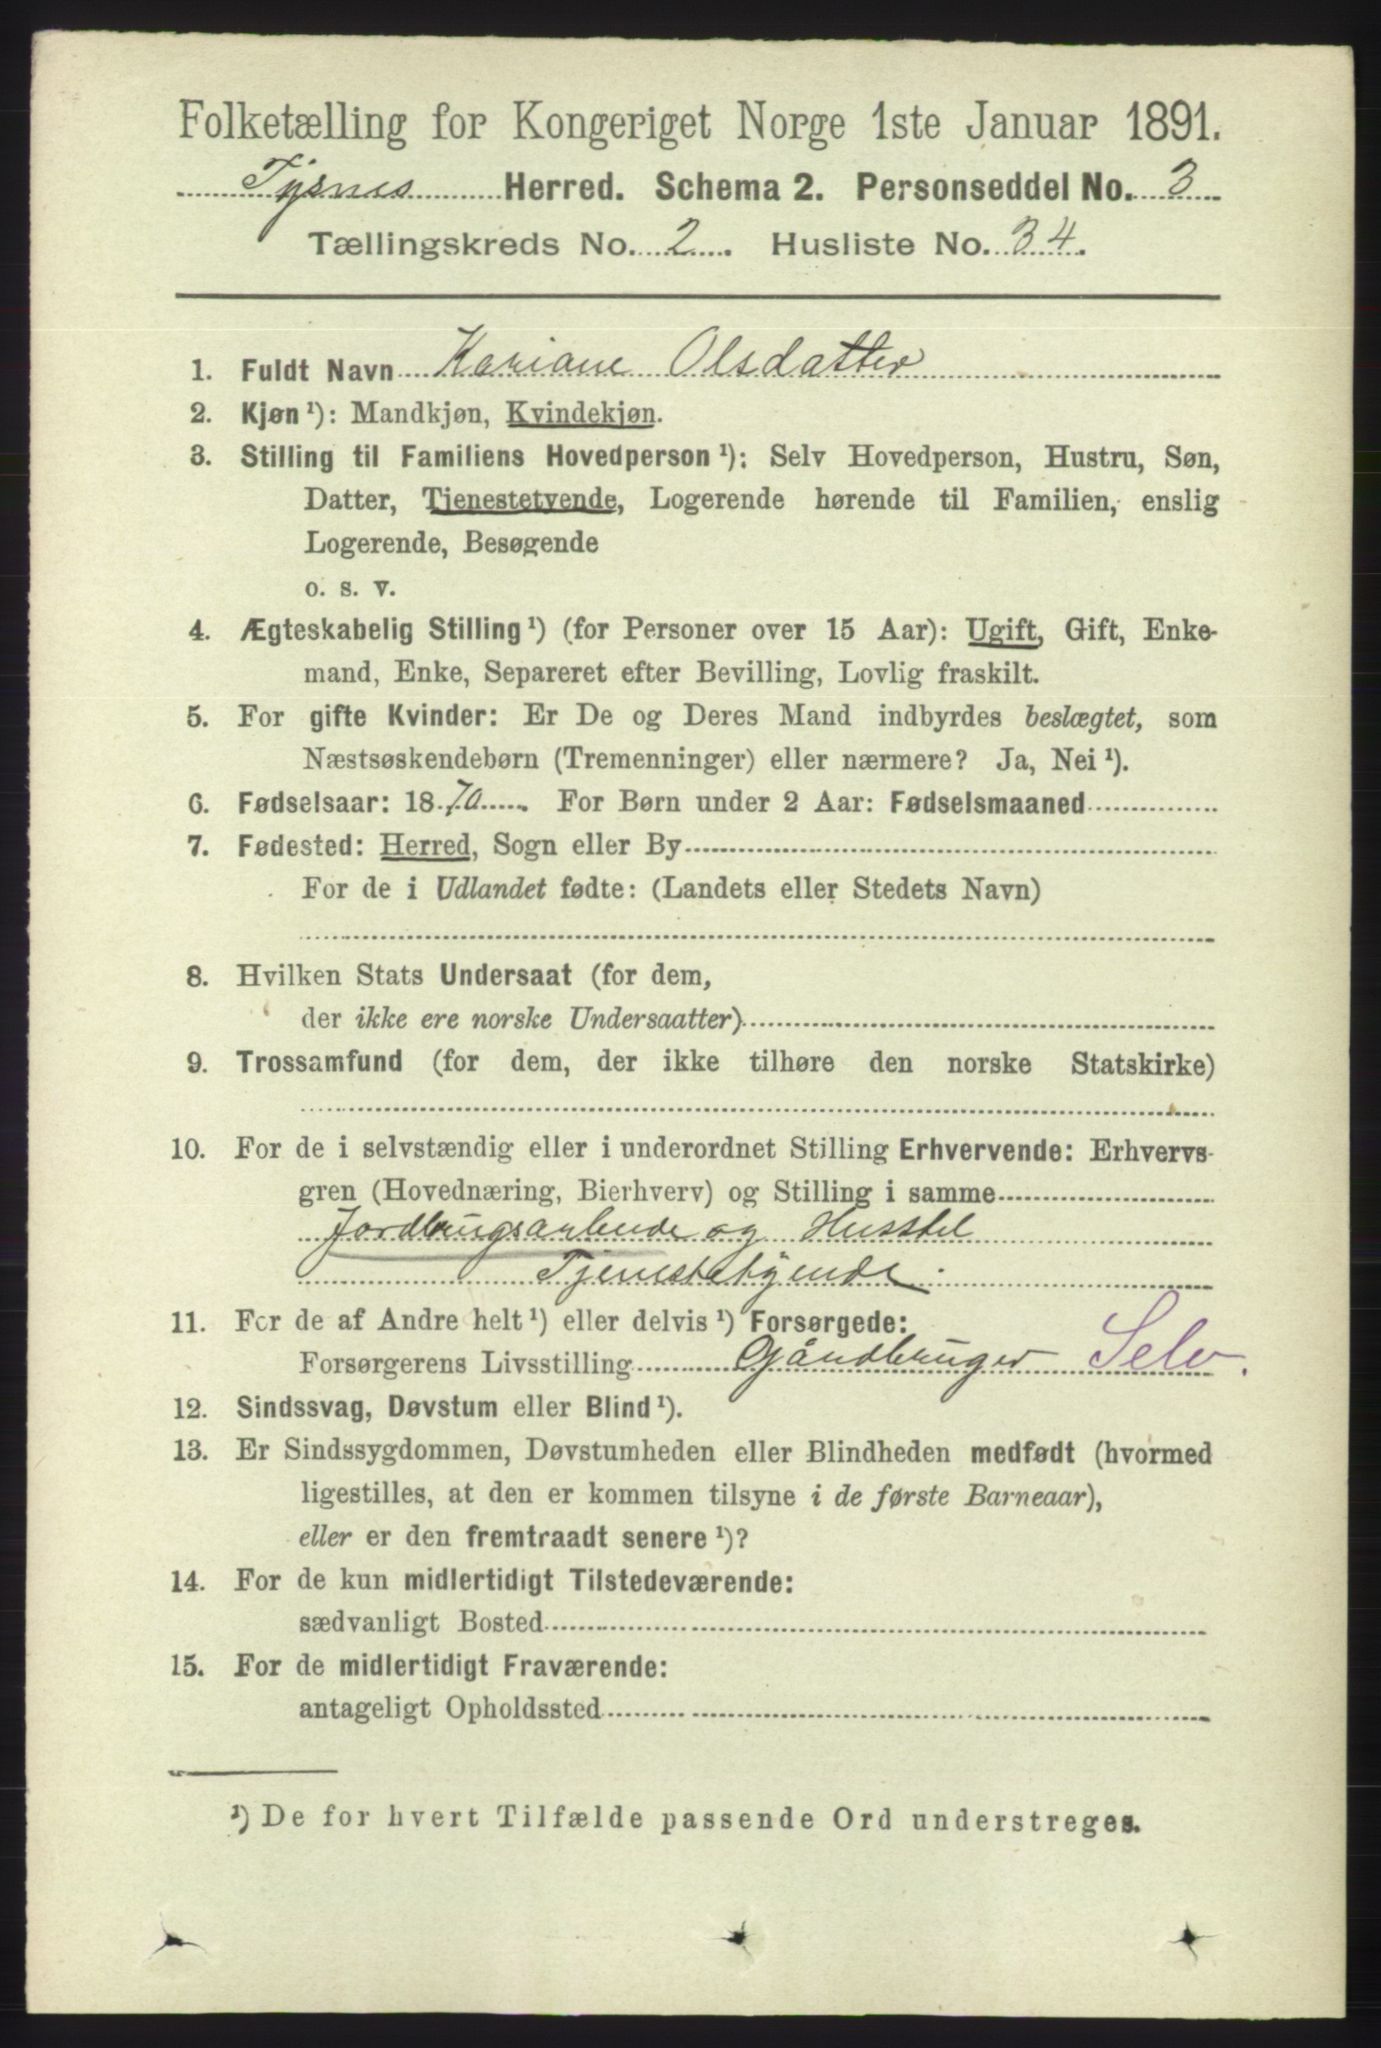 Folketælling for Kongeriget Norge 1ste Januar 1891.
Tysnes Herred. Schema 2. Personseddel No. 3
Tællingskreds No. 2. Husliste No. 34.
1. Fuldt Navn Kariane Olsdatter
2. Kjøn¹): Mandkjøn, Kvindekjøn.
3. Stilling til Familiens Hovedperson¹): Selv Hovedperson, Hustru, Søn,
Datter, Tjenestetyende, Logerende hørende til Familien, enslig
Logerende, Besøgende
o. s. v.
4. Ægteskabelig Stilling¹) (for Personer over 15 Aar): Ugift, Gift, Enke-
mand, Enke, Separeret efter Bevilling, Lovlig fraskilt.
5. For gifte Kvinder: Er De og Deres Mand indbyrdes beslægtet, som
Næstsøskendebørn (Tremenninger) eller nærmere? Ja, Nei¹).
6. Fødselsaar: 1870. For Børn under 2 Aar: Fødselsmaaned
7. Fødested: Herred, Sogn eller By
For de i Udlandet fødte: (Landets eller Stedets Navn)
8. Hvilken Stats Undersaat (for dem,
der ikke ere norske Undersaatter)
9. Trossamfund (for dem, der ikke tilhøre den norske Statskirke)
10. For de i selvstændig eller i underordnet Stilling Erhvervende: Erhvervs-
gren (Hovednæring, Bierhverv) og Stilling i samme
Jordbrugsarbeide og Husstel
Tjenestetyende.
11. For de af Andre helt¹) eller delvis¹) Forsørgede:
Forsørgerens Livsstilling Gårdbruger Selv.
12. Sindssvag, Døvstum eller Blind¹).
13. Er Sindssygdommen, Døvstumheden eller Blindheden medfødt (hvormed
ligestilles, at den er kommen tilsyne i de første Barneaar),
eller er den fremtraadt senere¹)?
14. For de kun midlertidigt Tilstedeværende:
sædvanligt Bosted
15. For de midlertidigt Fraværende:
antageligt Opholdssted
¹) De for hvert Tilfælde passende Ord understreges.